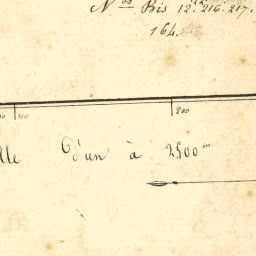 Nos Bis 12. 216. 217.
164.
200
lle D'un à 2500m